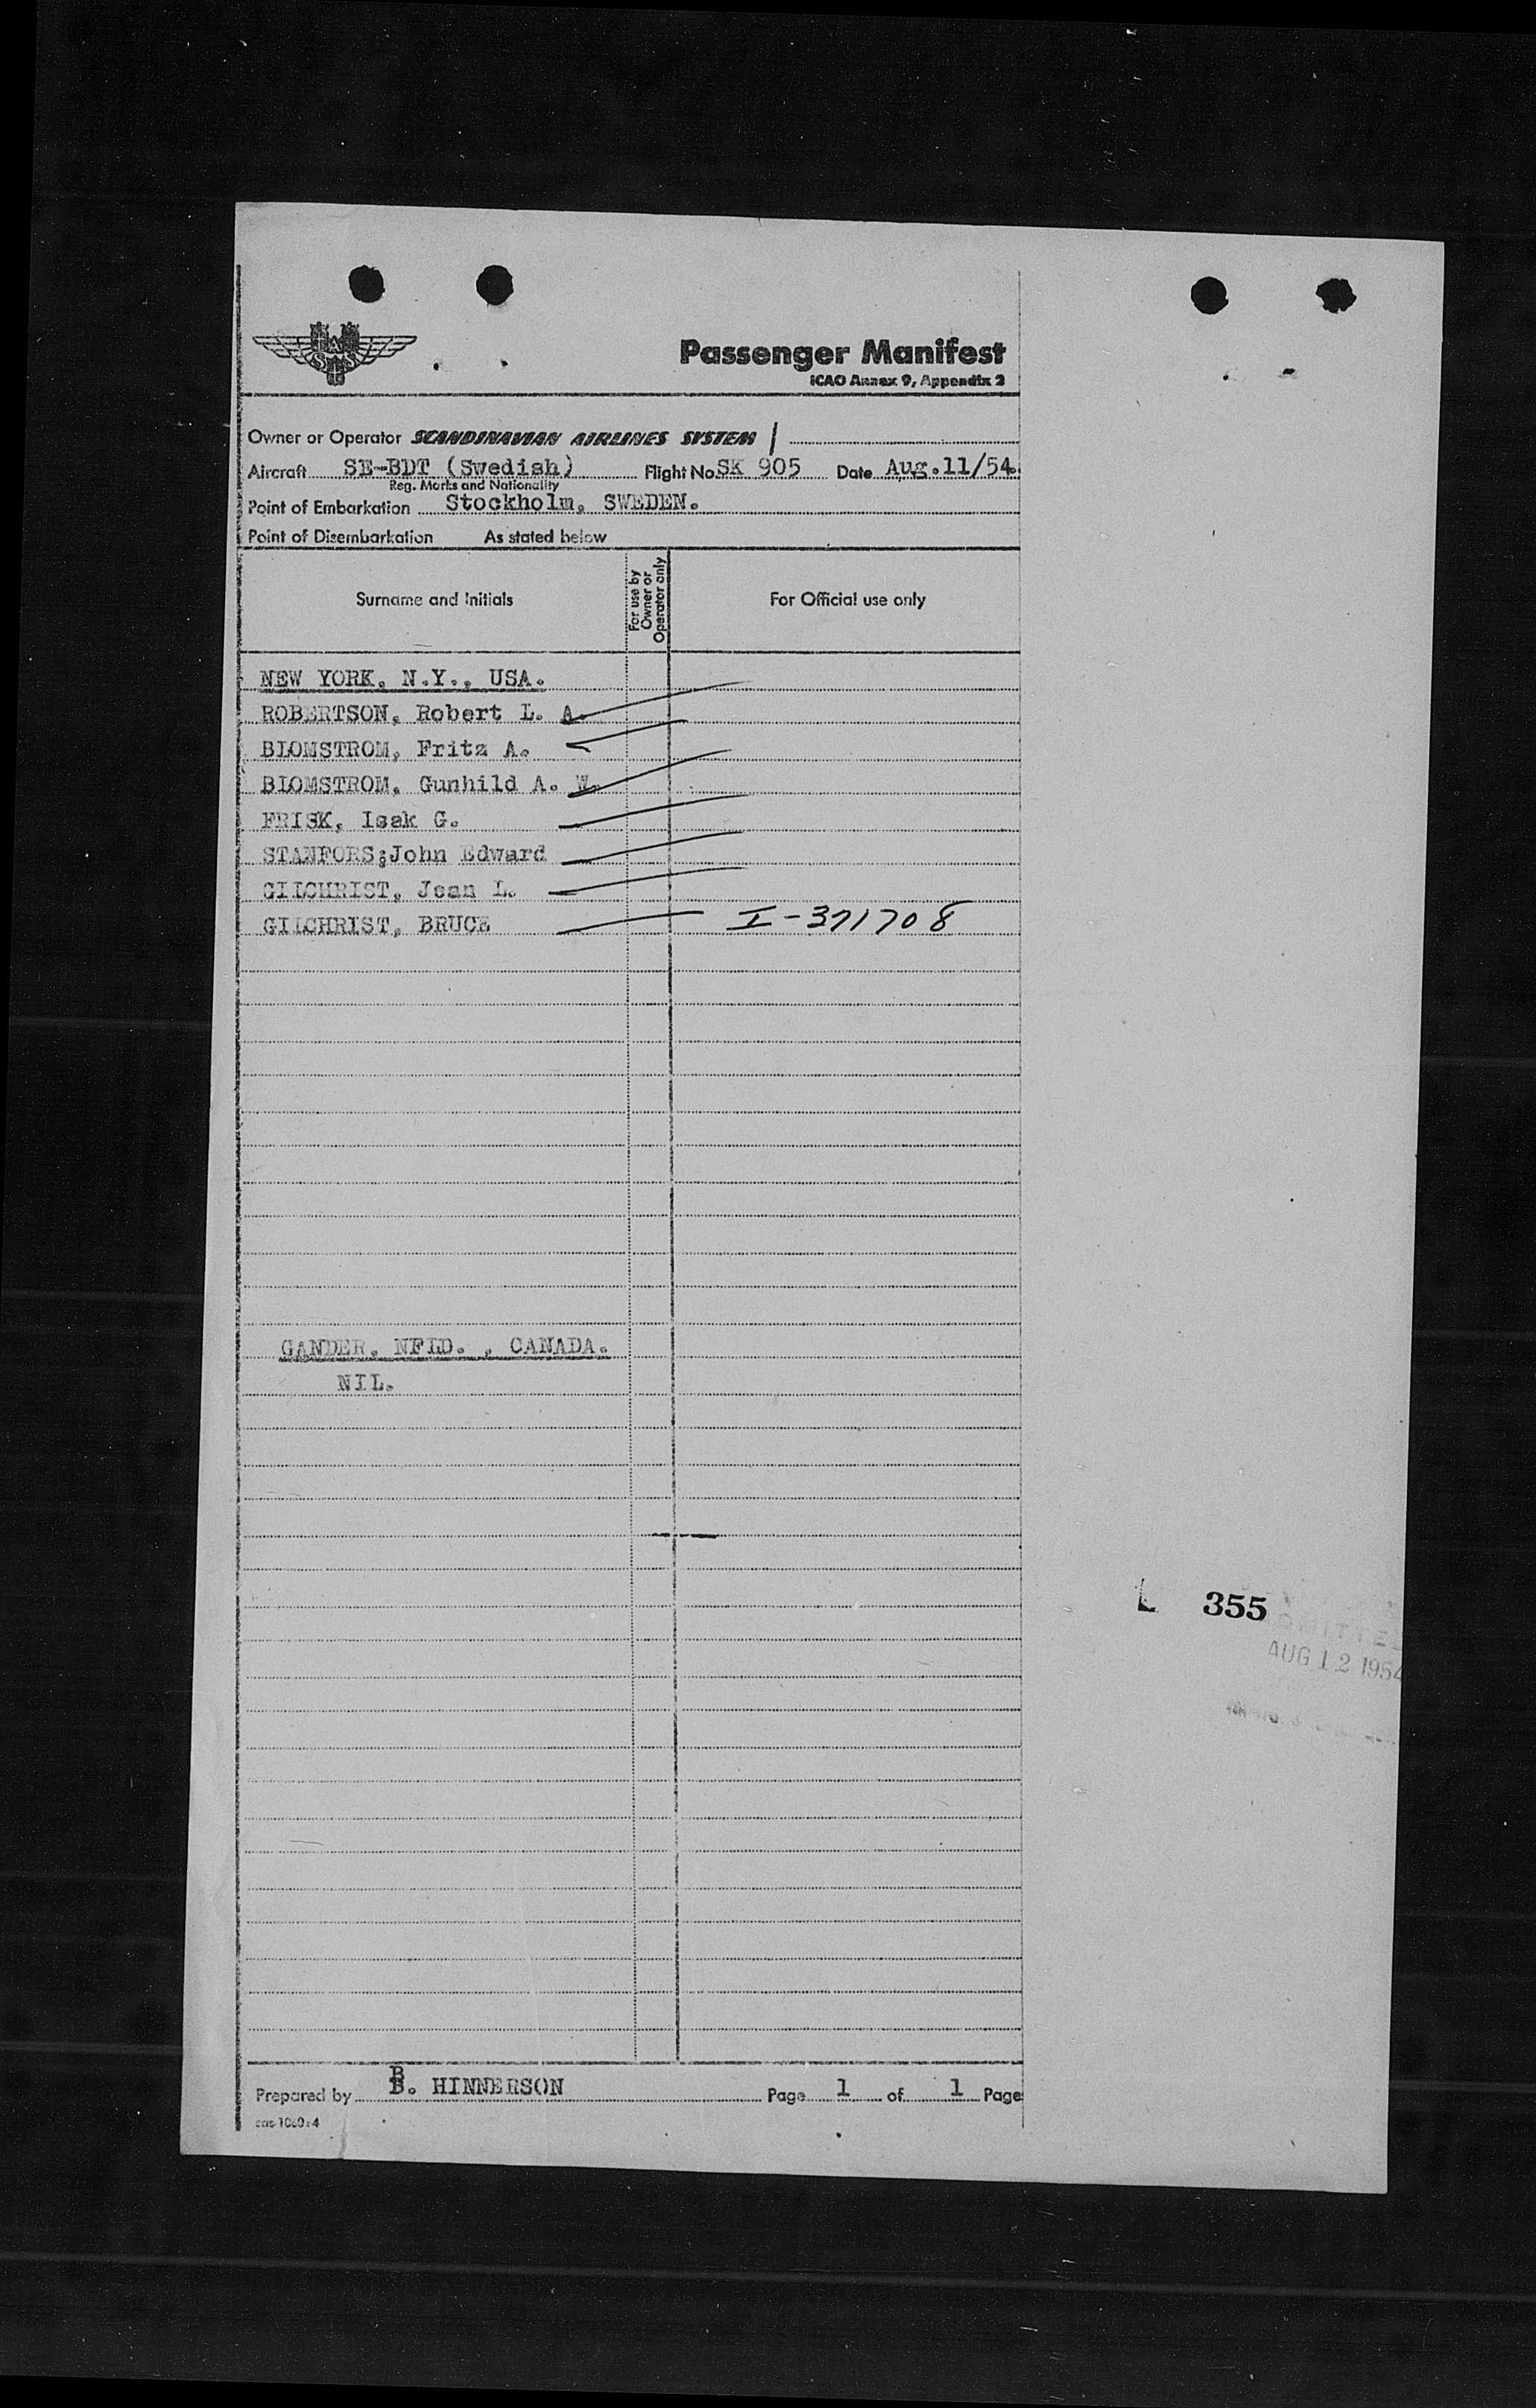 SAS
Passenger Manifest
ICAO Annex 9, Appendix 2
Owner or Operator SCANDINAVIAN AIRLINES SYSTEM /
Aircraft SE-BDT (Swedish) Flight No. SK 905 Date Aug.11/54.
Reg. Marks and Nationality
Point of Embarkation Stockholm, SWEDEN.
Point of Disembarkation As stated below
Surname and Initials For use by Owner or Operator only For Official use only
NEW YORK, N.Y., USA.
ROBERTSON, Robert L. A.
BLOMSTROM, Fritz A.
BLOMSTROM, Gunhild A. W.
FRISK, Isak G.
STANFORS; John Edward
GILCHRIST, Jean L.
GILCHRIST, BRUCE I-371708
GANDER, NFLD. , CANADA.
NIL.
L 355
ADMITTED
AUG 12 1954
Prepared by B. HINNERSON Page 1 of 1 Page